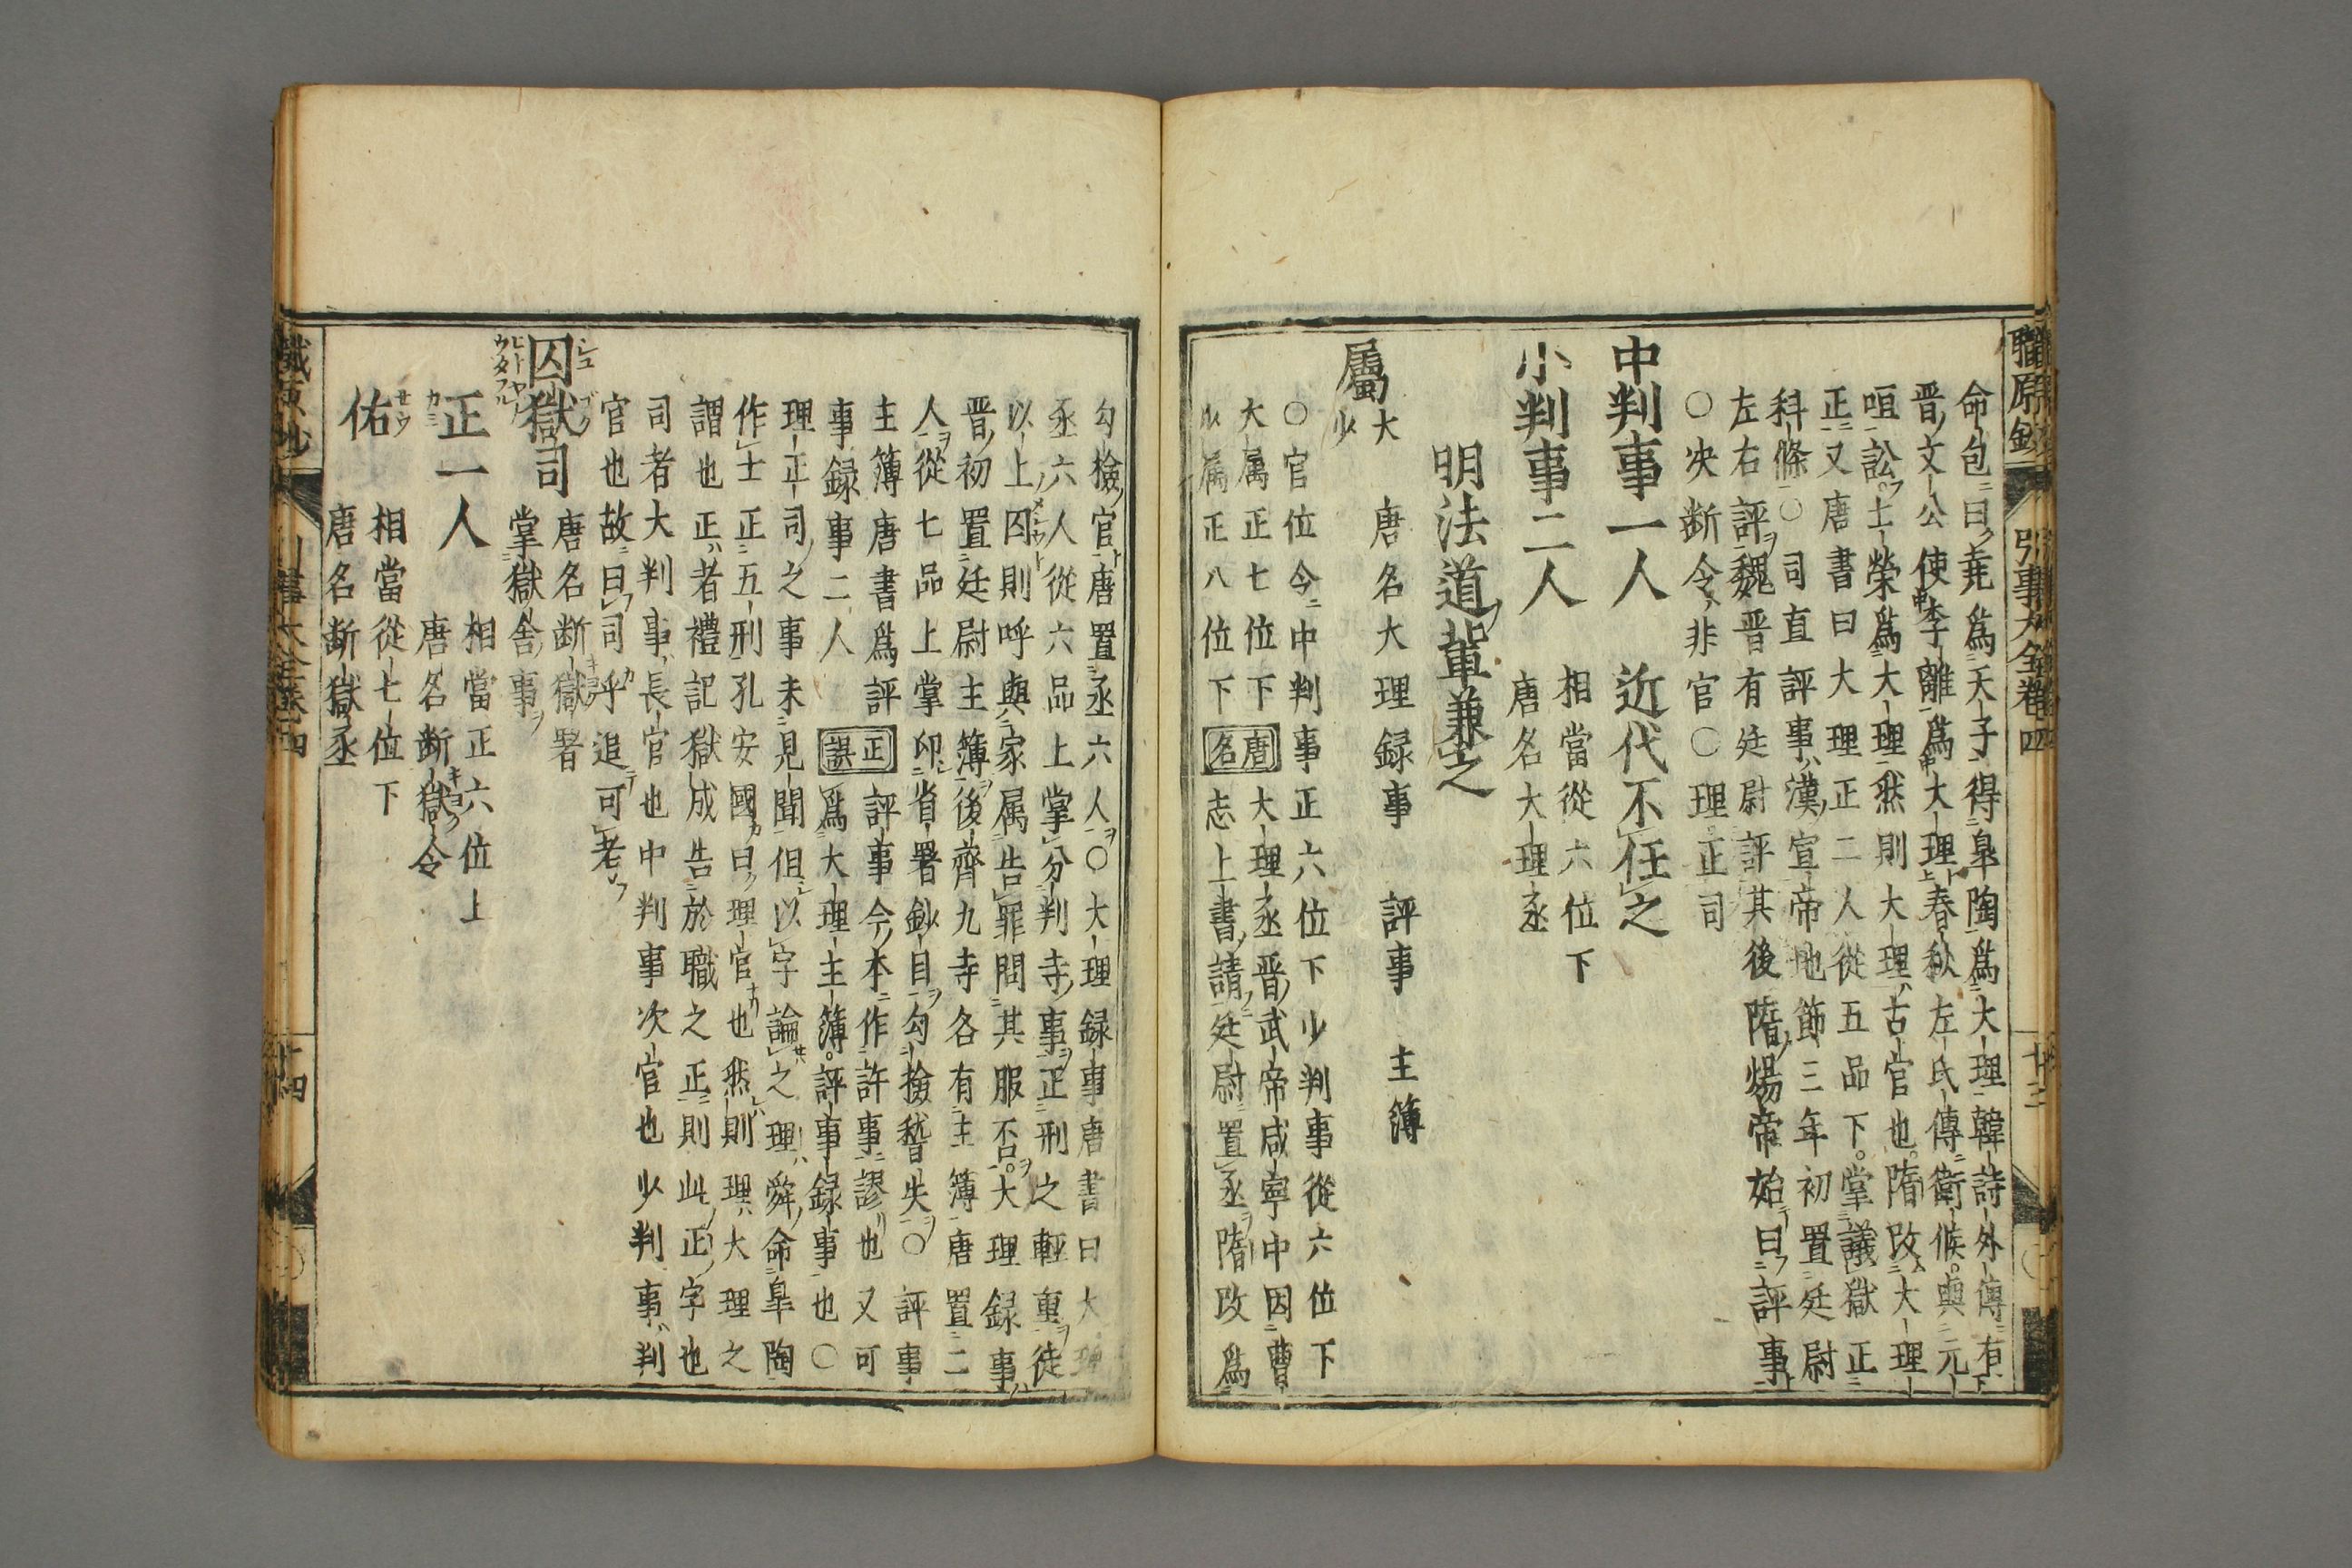 職原鈔 引事大全卷四 十三
命包曰堯爲天子得皐陶爲大理韓詩外傳有
晋文公使李離爲大理春秋左氏傳衛候與元
咀訟士榮爲大理然則大理古官也隋改大理
正又唐書曰大理正二人從五品下掌議獄正
科條○司直評事漢宣帝地節三年初置廷尉
左右評魏晋有廷尉評其後隋煬帝始曰評事
○决断令非官○理正司
中判事一人 近代不任之
小判事二人 相當從六位下
唐名大理丞
明法道輩兼之
屬 大
少 唐名大理録事 評事 主簿
○官位令中判事正六位下少判事從六位下
大属正七位下 大理丞晋武帝咸寧中因曹
少属正八位下 唐名 志上書請廷尉置丞隋改爲
勾檢官唐置丞六人○大理録事唐書曰大理
丞六人從六品上掌分判寺事正刑之輕重徒
以上囚則呼與家属告罪問其服否大理録事
晋初置廷尉主簿後齊九寺各有主簿唐置二
人從七品上掌印省署鈔目勾撿稽失○評事
主簿唐書爲評事今本作許事謬也又可
事録事二人 正誤 爲大理主簿評事録事也○
理正司之事未見聞但以字論之理舜命皐陶
作士正五刑孔安國曰理官也然則理大理之
謂也正者禮記獄成告於職之正則此正字也
司者大判事長官也中判事次官也少判事判
官也故曰司乎追可考
囚獄司 唐名断獄署
掌獄舎事
正一人 相當正六位上
唐名断獄令
佑 相當從七位下
唐名断獄丞